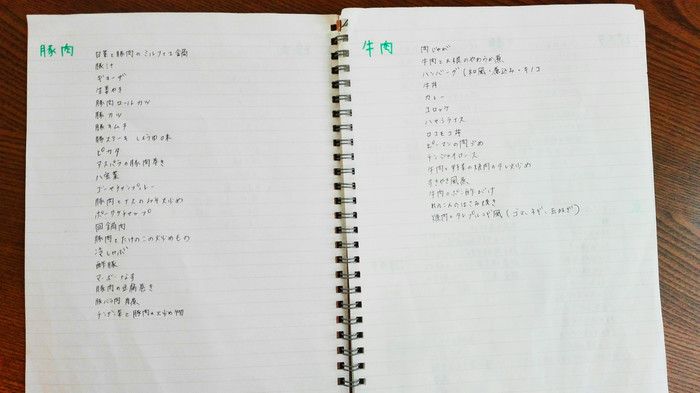 豚肉
白菜と豚肉のミルフィーユ鍋
豚汁
ギョーザ
生姜やき
豚肉ロールカツ
豚カツ
豚キムチ
豚ステーキ しょうゆ味
ピカタ
アスパラの豚肉巻き
八宝菜
ゴーヤチャンプルー
豚肉とナスのみそ炒め
ポークチャップ
回鍋肉
豚肉とたけのこの炒めもの
冷しゃぶ
酢豚
マーボーなす
豚肉の豆腐巻き
豚バラ肉 角煮
チンゲン菜と豚肉の炒め物
牛肉
肉じゃが
牛肉と大根のやわらか煮
ハンバーグ(和風・煮込み・キノコ
牛丼
カレー
コロッケ
ハヤシライス
ロコモコ丼
ピーマンの肉づめ
チンジャオロース
牛肉と野菜の焼肉のタレ炒め
すきやき風煮
牛肉のポン酢がけ
れんこんのはさみ焼き
焼肉サラダ